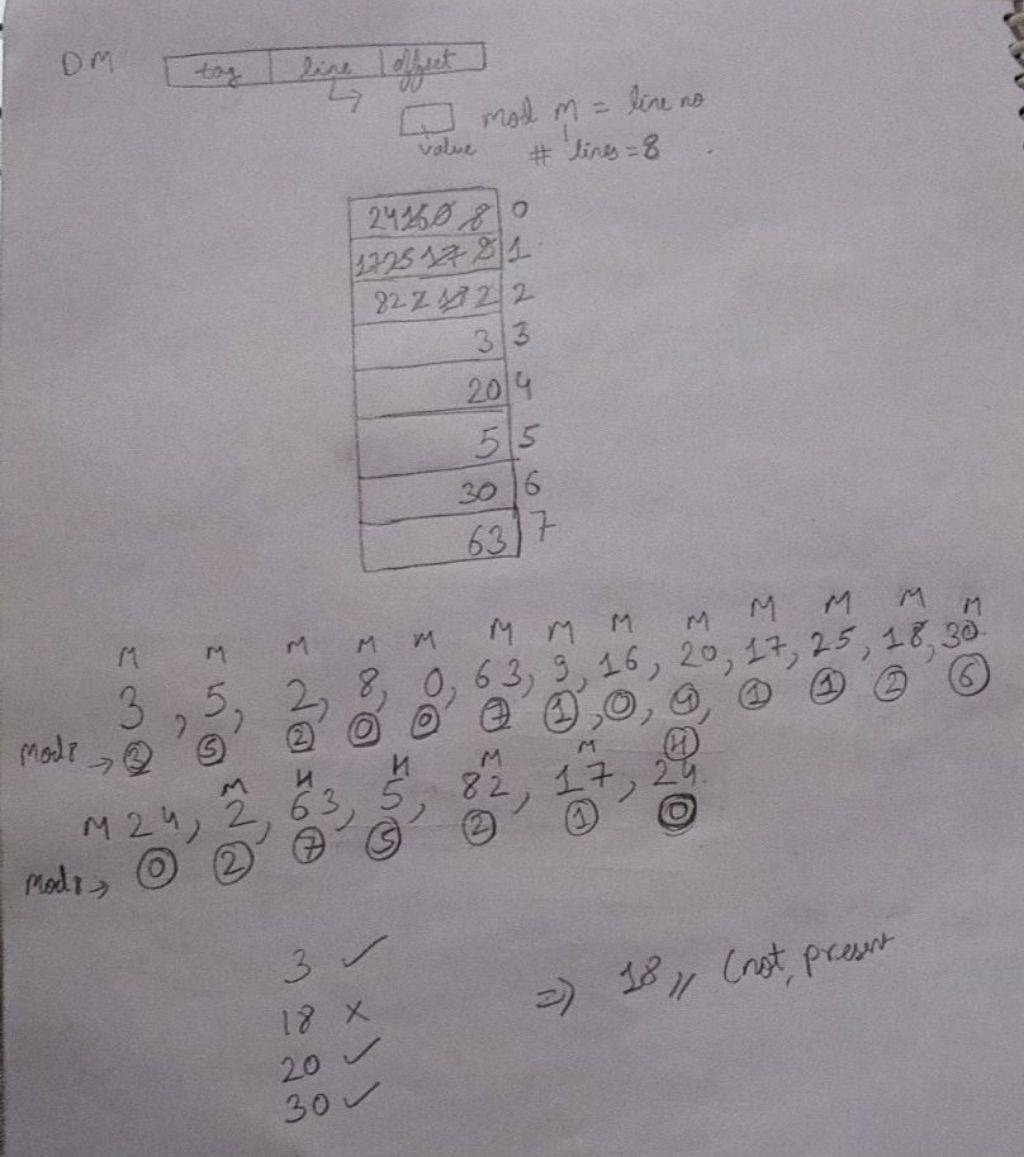 DM tag line offset
value mod M = line no
# lines = 8
24 16 0 8 0
17 25 17 9 1
82 2 18 2 2
3 3
20 4
5 5
30 6
63 7
M M M M M M M M M M M M M
3, 5, 2, 8, 0, 63, 9, 16, 20, 17, 25, 18, 30
mod 8 → 3 5 2 0 0 7 1, 0, 4, 1 1 2 6
M H H M M H
M 24, 2, 63, 5, 82, 17, 24.
mod 8 → 0 2 7 5 2 1 0
3 ✓
18 × ⇒ 18 // (not, present
20 ✓
30 ✓